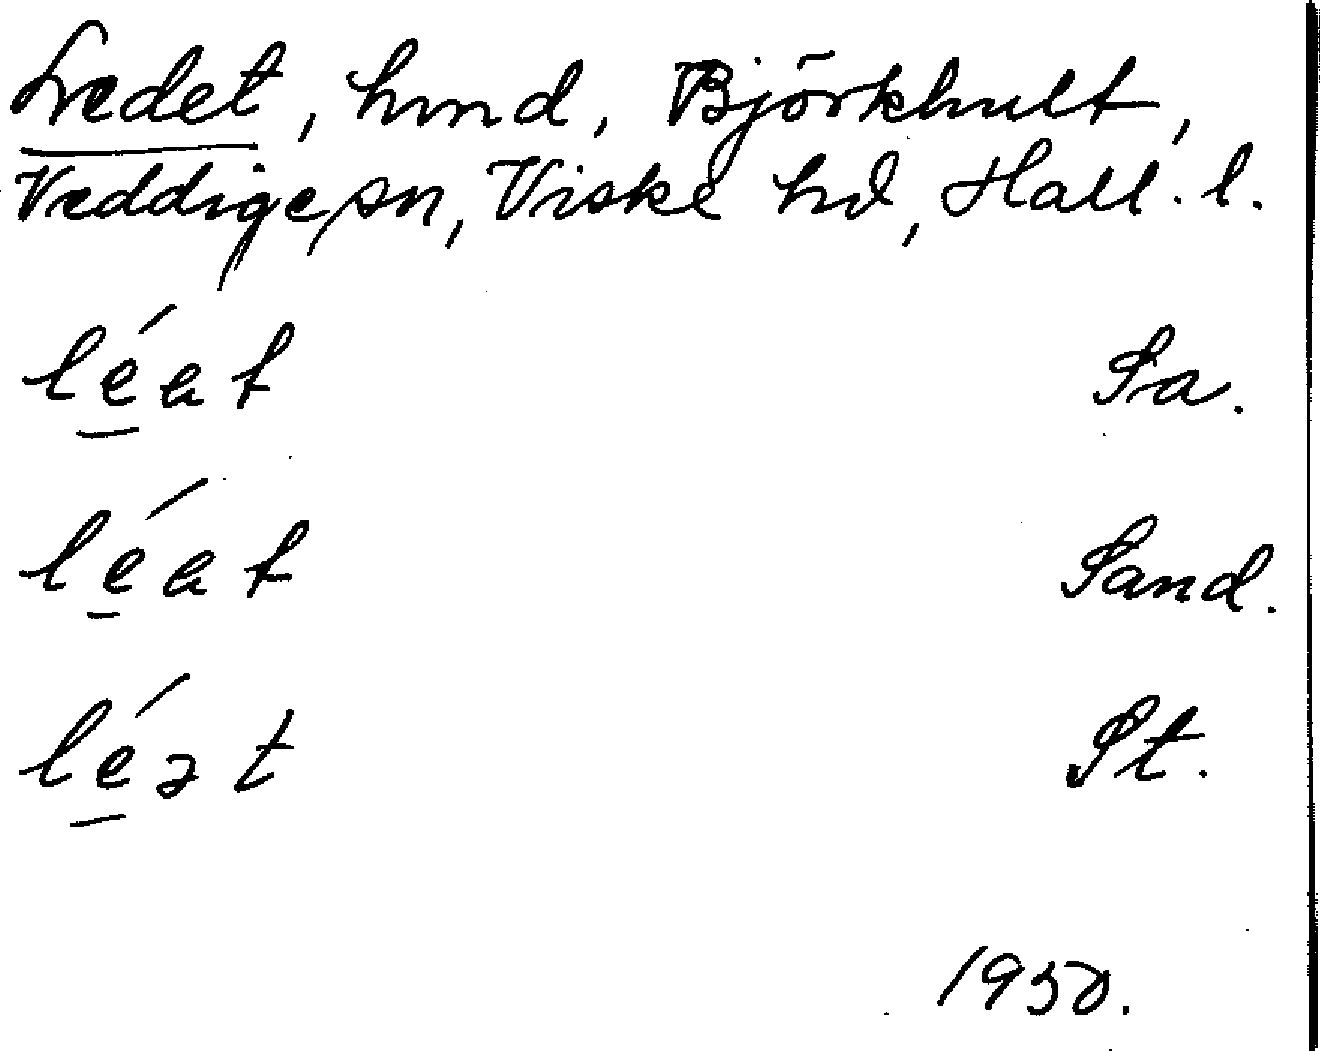 Ledet, hmd, Björkhult,
Veddige sn, Viske hd, Hall. l.
lé̱at Sa.
lé̱at Sand.
lé̱ət St.
1950.